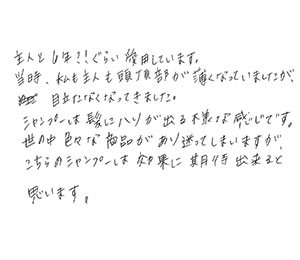 主人と6年?!ぐらい愛用しています。
当時、私も主人も頭頂部が薄くなっていましたが、
目立たなくなってきました。
シャンプーは髪にハリが出る様な感じです。
世の中色々な商品があり迷ってしまいますが、
こちらのシャンプーは効果に期待出来ると
思います。